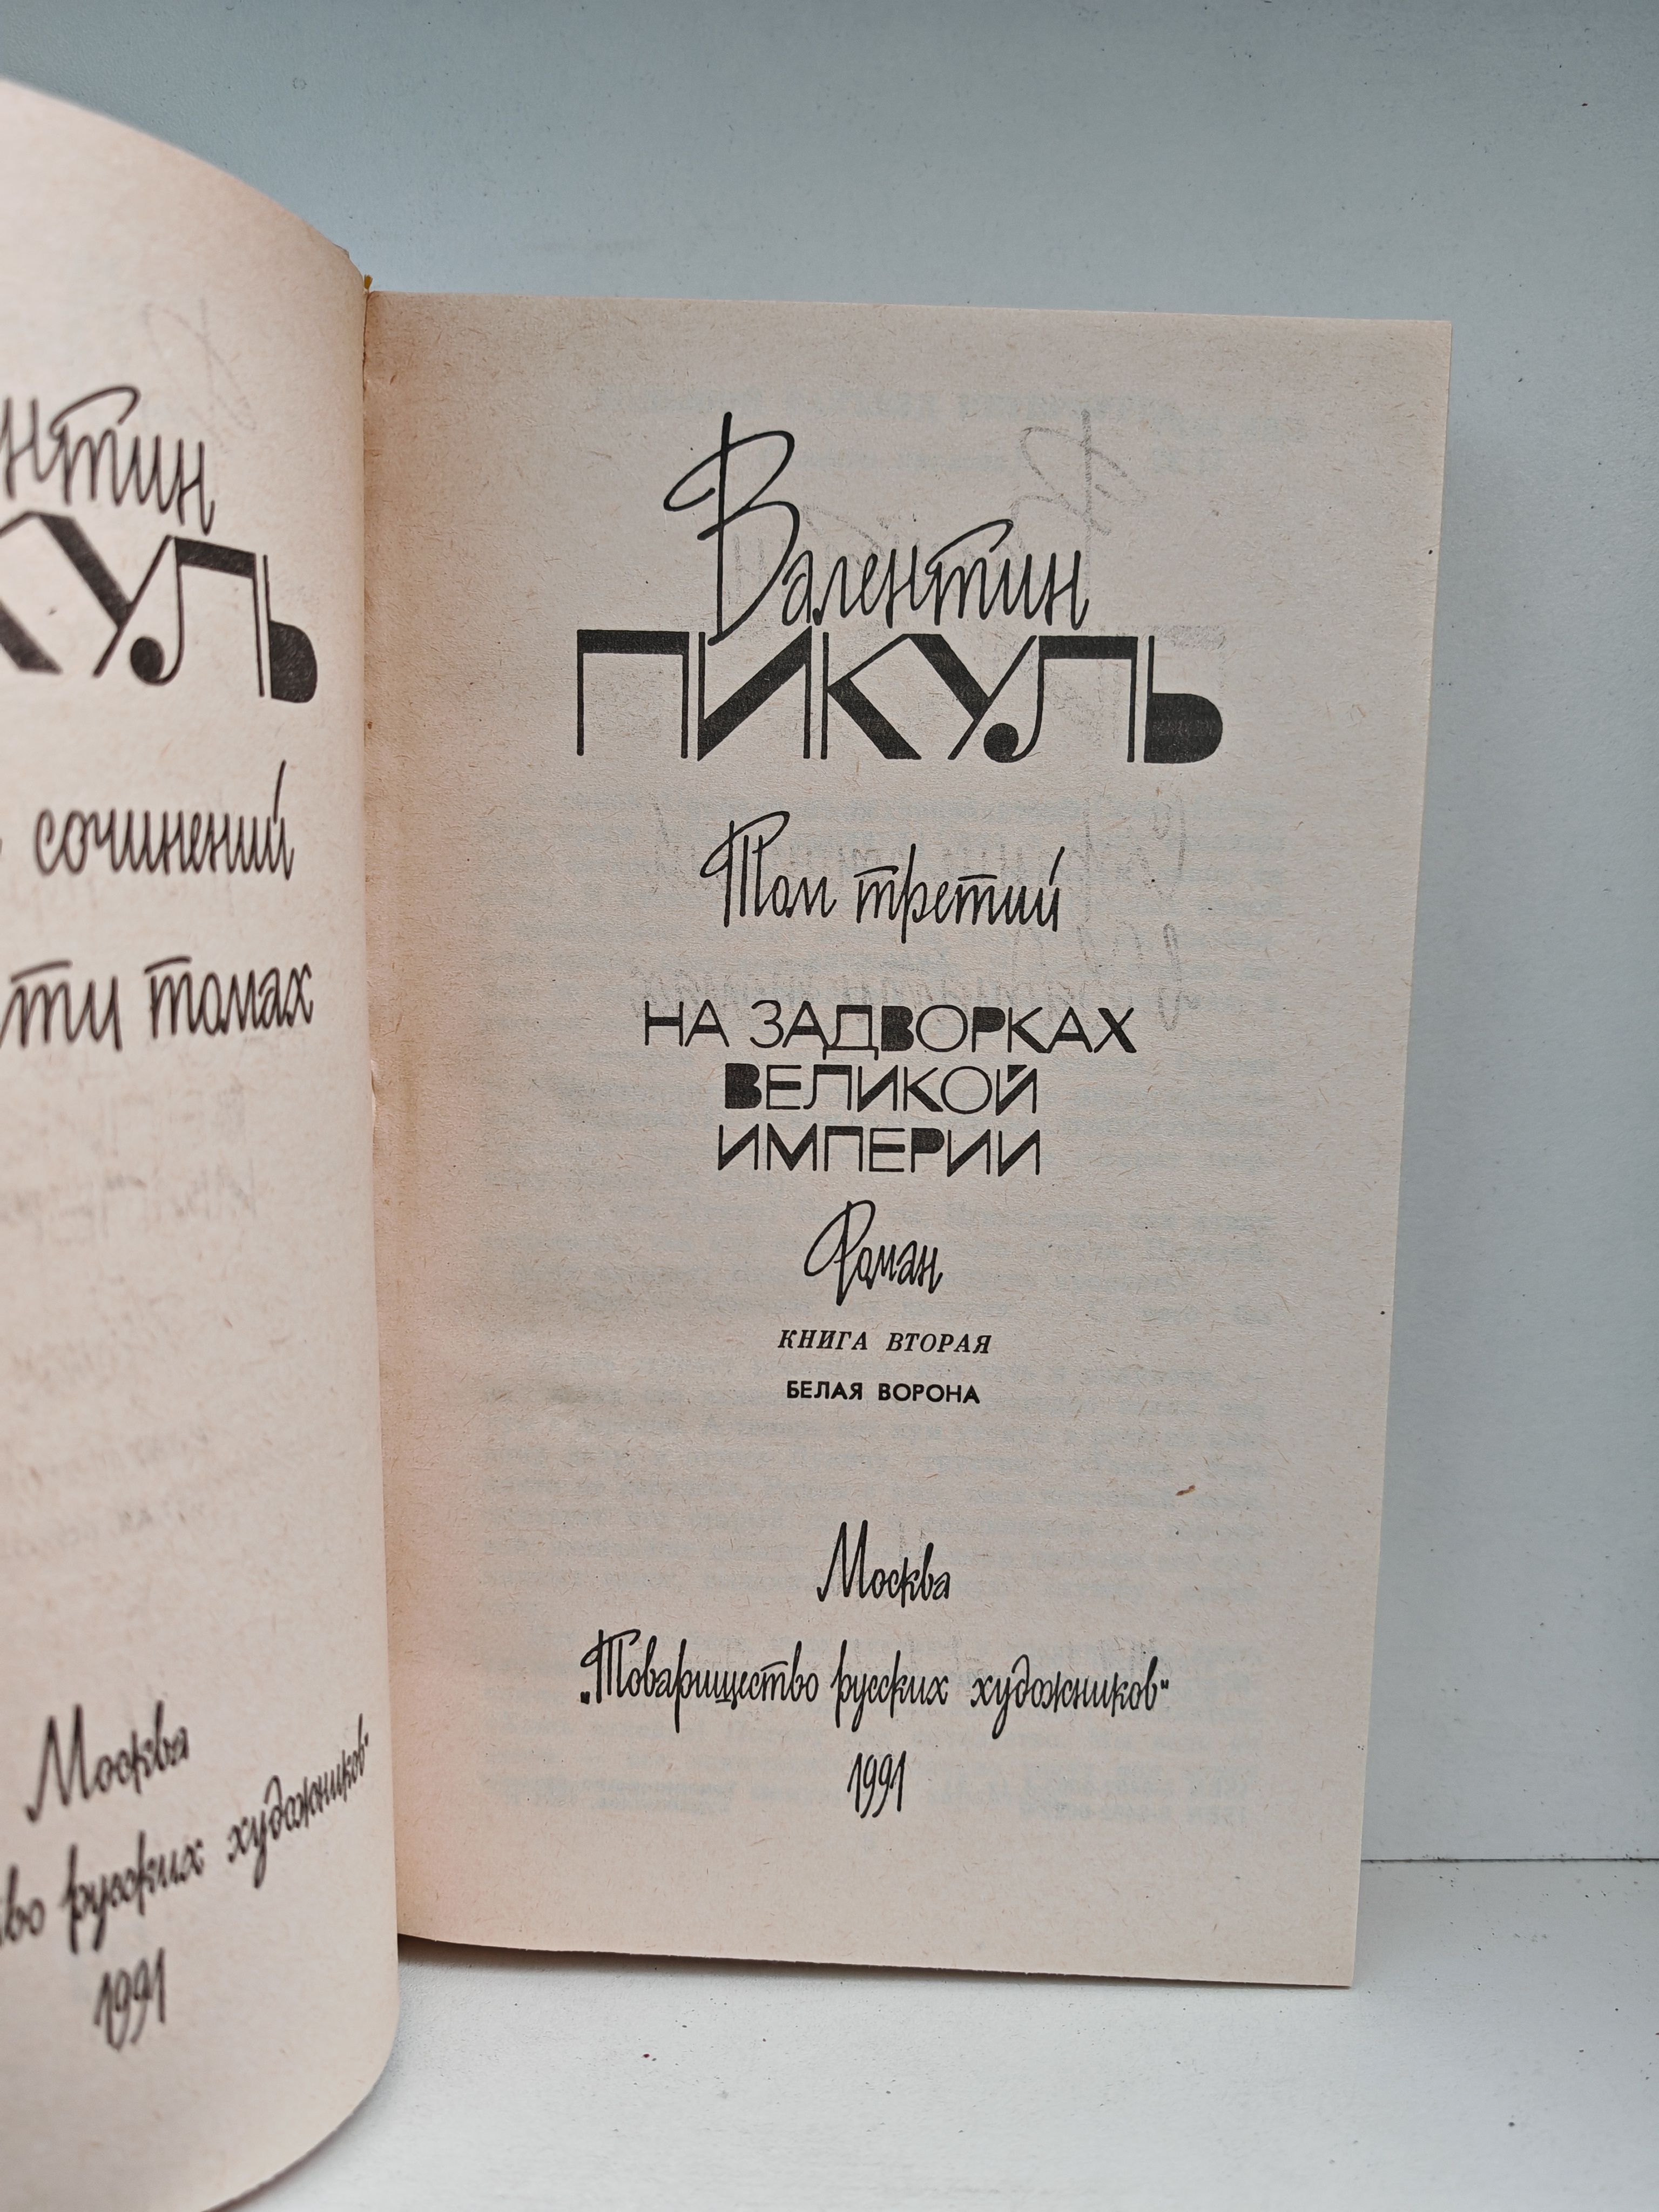 сочинений
томах
Москва
русских художников"
1991
Валентин
ПИКУЛЬ
Том третий
НА ЗАДВОРКАХ
ВЕЛИКОЙ
ИМПЕРИИ
Роман
КНИГА ВТОРАЯ
БЕЛАЯ ВОРОНА
Москва
„Товарищество русских художников"
1991